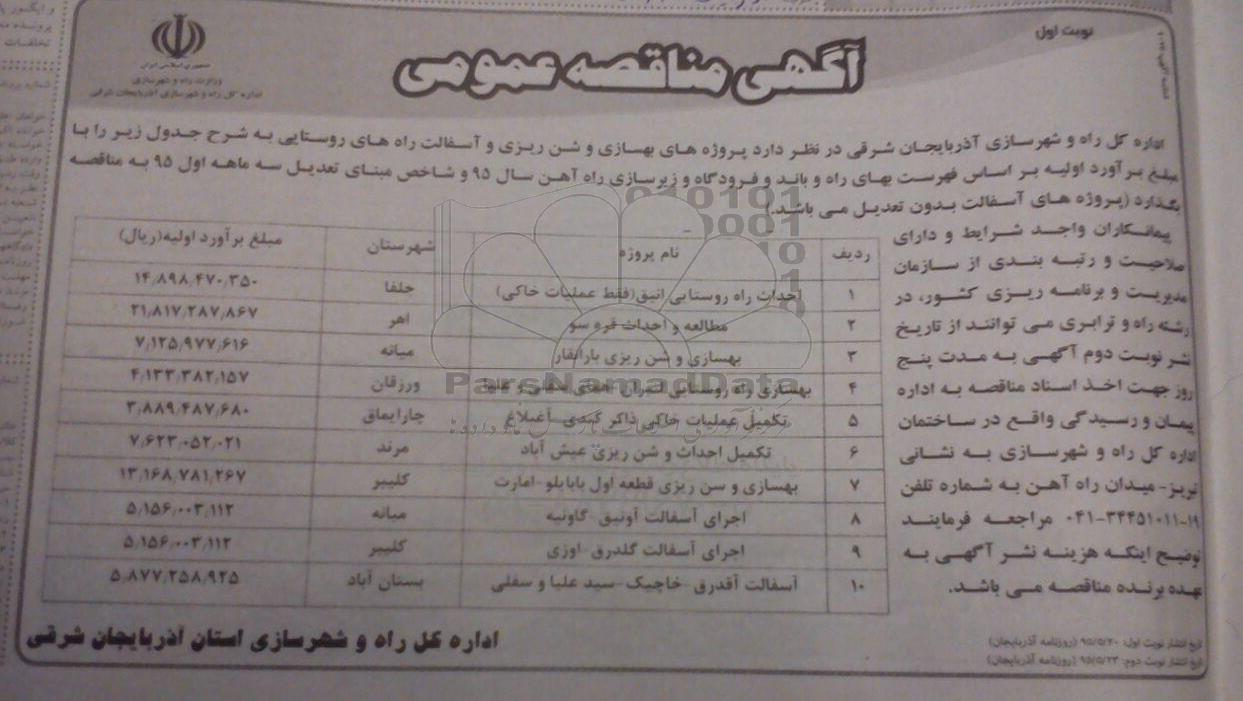 نوبت اول
جمهوری اسلامی ایران
وزارت راه و شهرسازی
اداره کل راه و شهرسازی آذربایجان شرقی
آگهی مناقصه عمومی
اداره کل راه و شهرسازی آذربایجان شرقی در نظر دارد پروژه های بهسازی و شن ریزی و آسفالت راه های روستایی به شرح جدول زیر را با
مبلغ برآورد اولیه بر اساس فهرست بهای راه و باند و فرودگاه و زیرسازی راه آهن سال ۹۵ و شاخص مبنای تعدیل سه ماهه اول ۹۵ به مناقصه
بگذارد (پروژه های آسفالت بدون تعدیل می باشد.)
پیمانکاران واجد شرایط و دارای
صلاحیت و رتبه بندی از سازمان
مدیریت و برنامه ریزی کشور، در
رشته راه و ترابری می توانند از تاریخ
نشر نوبت دوم آگهی به مدت پنج
روز جهت اخذ اسناد مناقصه به اداره
پیمان و رسیدگی واقع در ساختمان
اداره کل راه و شهرسازی به نشانی
تبریز- میدان راه آهن به شماره تلفن
۱۹-۳۴۴۵۱۰۱۱-۰۴۱ مراجعه فرمایند
توضیح اینکه هزینه نشر آگهی به
عهده برنده مناقصه می باشد.
ردیف نام پروژه شهرستان مبلغ برآورد اولیه(ریال)
۱ احداث راه روستایی انیق(فقط عملیات خاکی) جلفا ۱۴٫۸۹۸٫۴۷۰٫۳۵۰
۲ مطالعه و احداث قره سو اهر ۲۱٫۸۱۷٫۲۸۷٫۸۶۷
۳ بهسازی و شن ریزی میانه ۷٫۱۲۵٫۹۷۷٫۶۱۶
۴ بهسازی راه روستایی ورزقان ۴٫۱۳۳٫۳۸۲٫۱۵۷
۵ تکمیل عملیات خاکی ذاکر کندی آغبلاغ چارایماق ۳٫۸۸۹٫۴۸۷٫۶۸۰
۶ تکمیل احداث و شن ریزی عیش آباد مرند ۷٫۶۲۳٫۰۵۲٫۰۲۱
۷ بهسازی و سن ریزی قطعه اول بابابلو-امارت کلیبر ۱۳٫۱۶۸٫۷۸۱٫۲۶۷
۸ اجرای آسفالت آونیق-گاونیه میانه ۵٫۱۵۶٫۰۰۳٫۱۱۲
۹ اجرای آسفالت گلدرق-اوزی کلیبر ۵٫۱۵۶٫۰۰۳٫۱۱۲
۱۰ آسفالت آقدرق-خاچیک-سید علیا و سفلی بستان آباد ۵٫۸۷۷٫۲۵۸٫۹۲۵
ParsNamadData
اداره کل راه و شهرسازی استان آذربایجان شرقی
تاریخ انتشار نوبت اول: ۹۵/۵/۲۰ (روزنامه آذربایجان)
تاریخ انتشار نوبت دوم: ۹۵/۵/۲۳ (روزنامه آذربایجان)